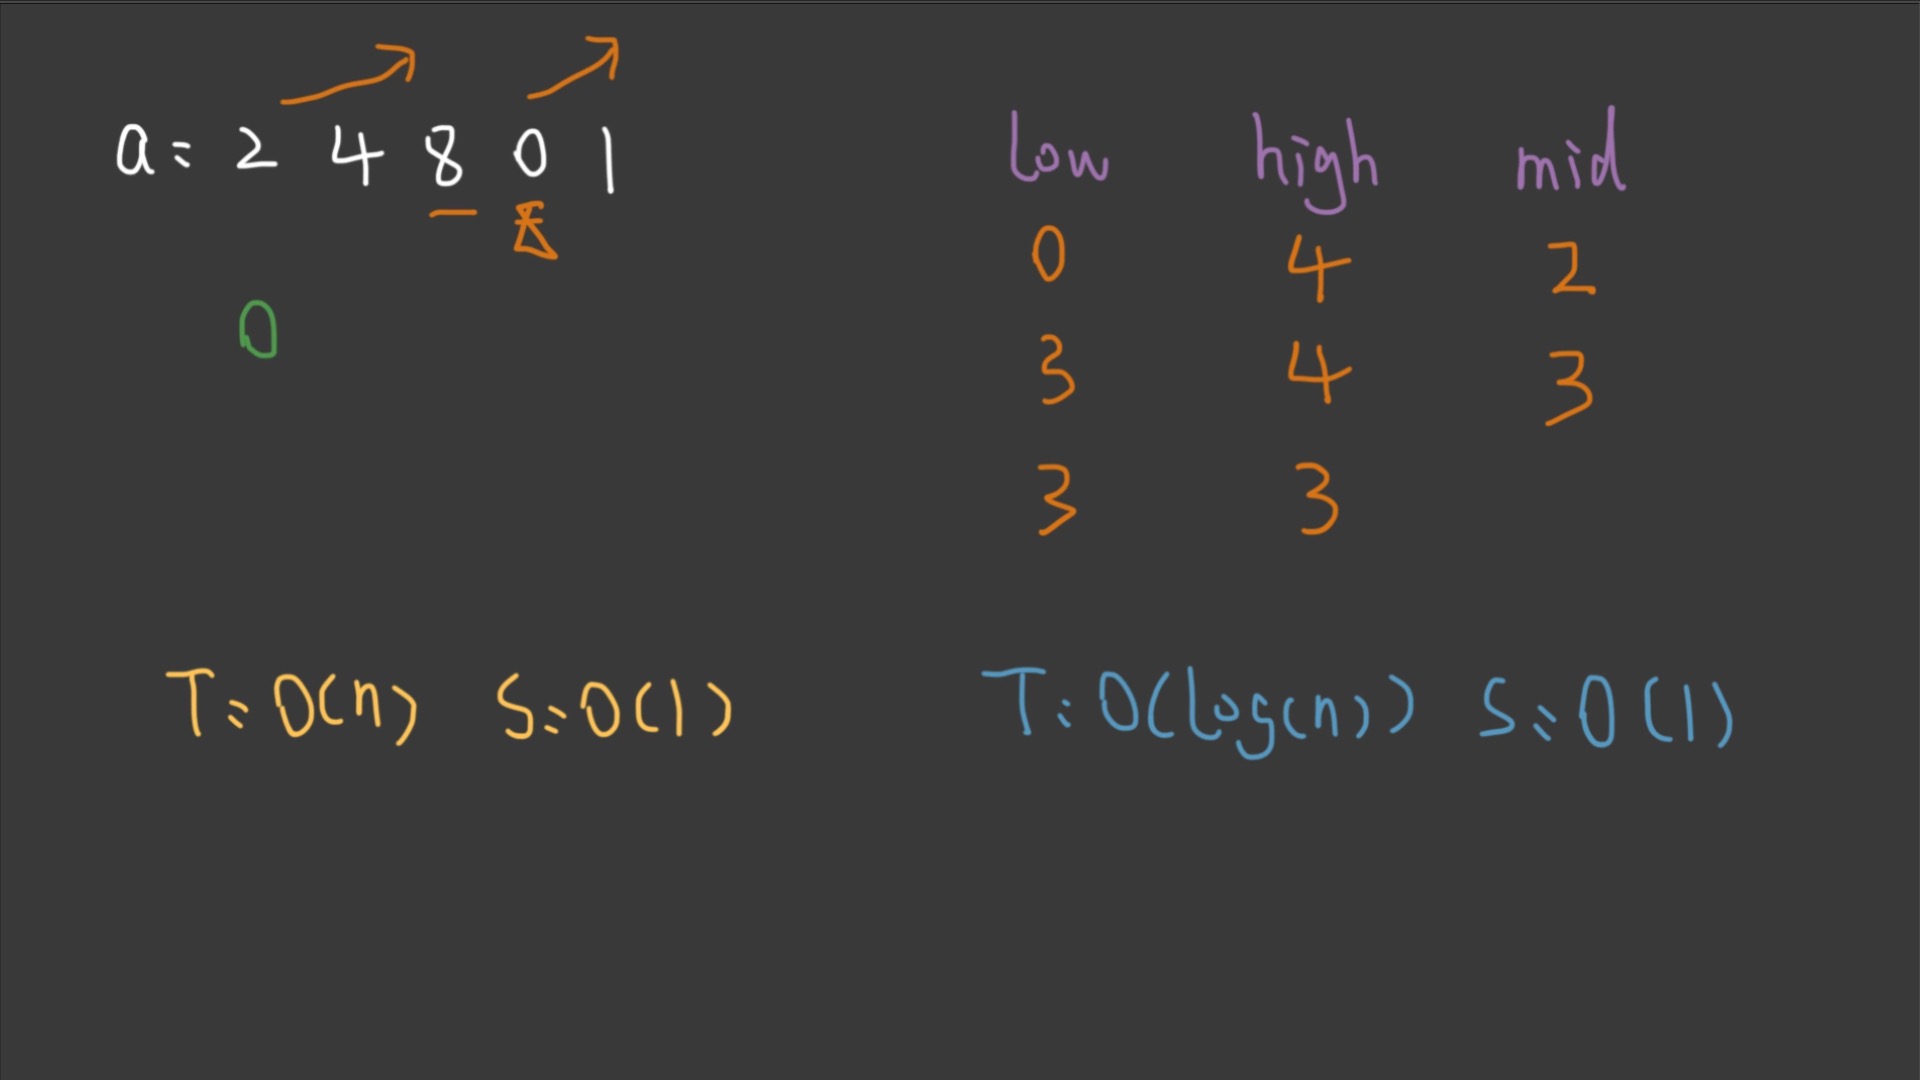 a= 2 4 8 0 1
0
low high mid
0 4 2
3 4 3
3 3
T: O(n) S: O(1)
T: O(log(n)) S: O(1)